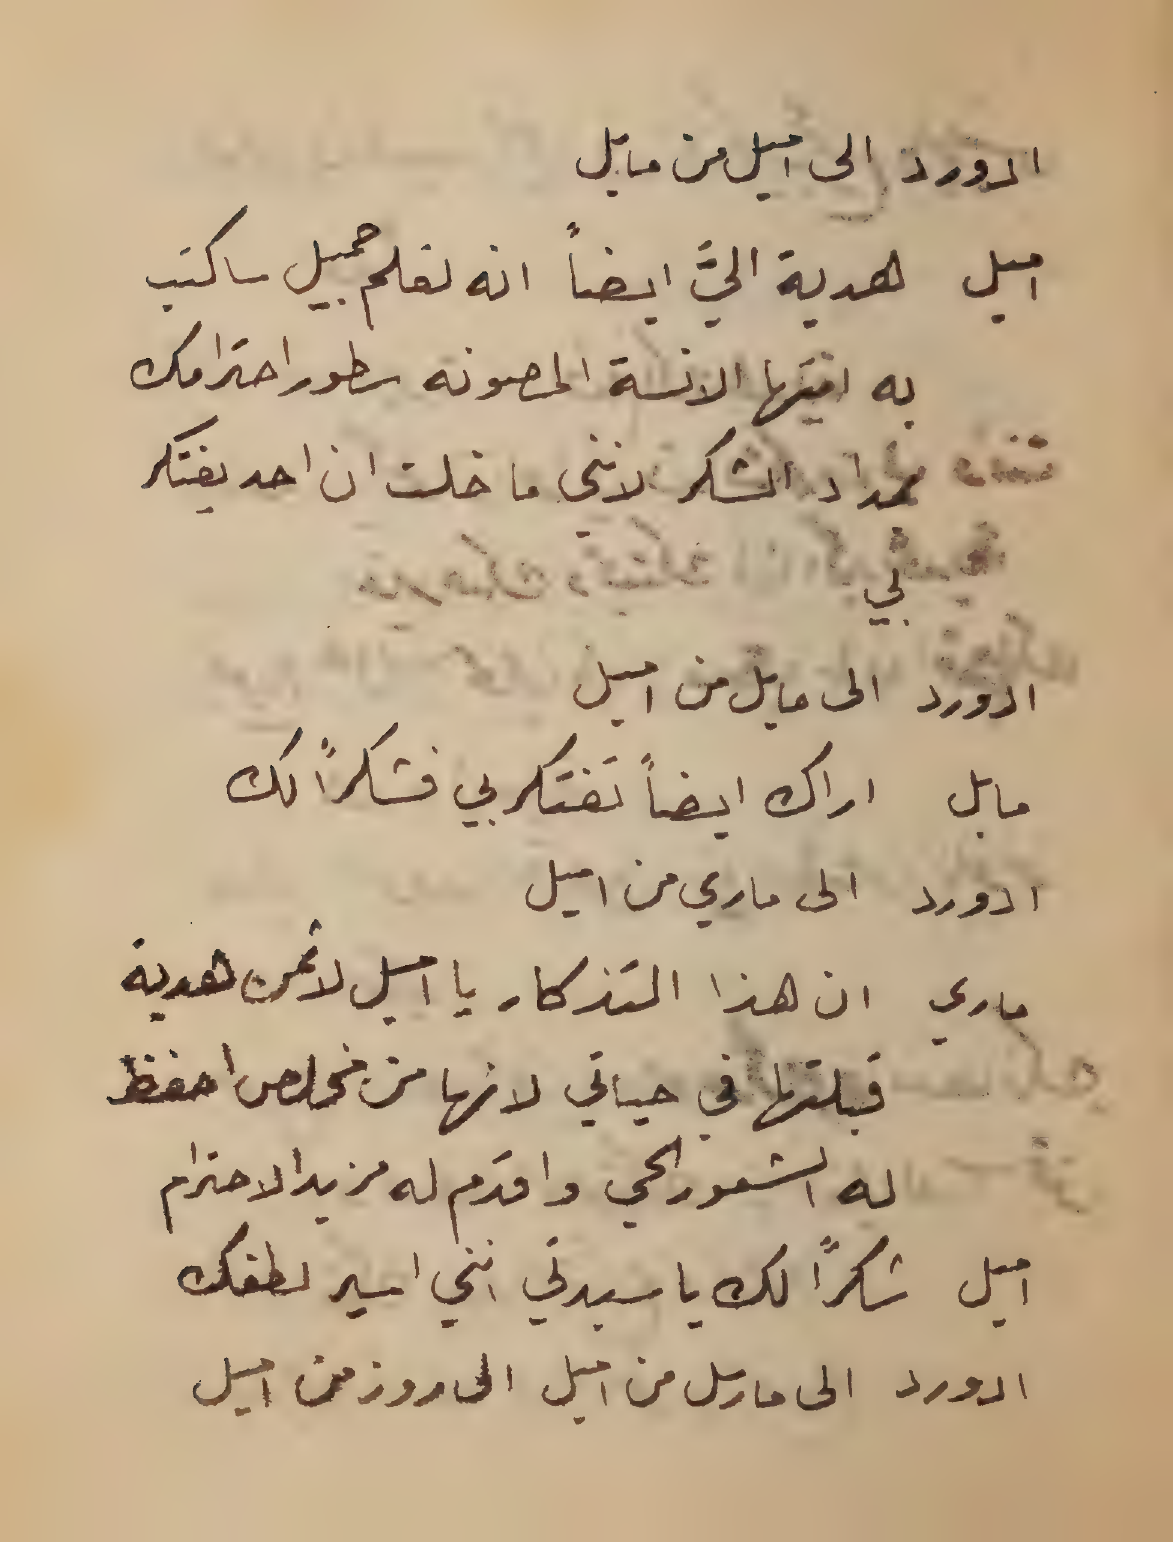 ادورد الى اميل من مابل
اميل هدية اليَّ ايضاً انه لقلم جميل ساكتب
به ايتها الانسة المصونه سطور احترامك
بمداد الشكر لانني ما خلت ان احد يفتكر
بي
ادورد الى مابل من اميل
مابل اراك ايضاً تفتكر بي فشكراً لك
ادورد الى ماري من اميل
ماري ان هذا التذكار يا اميل لاثمن هدية
قبلتها في حياتي لانها من مخلص احفظ
له الشعور الحي واقدم له مزيد الاحترام
اميل شكراً لك يا سيدتي انني اسير لطفك
ادورد الى مارسل من اميل الى روز من اميل